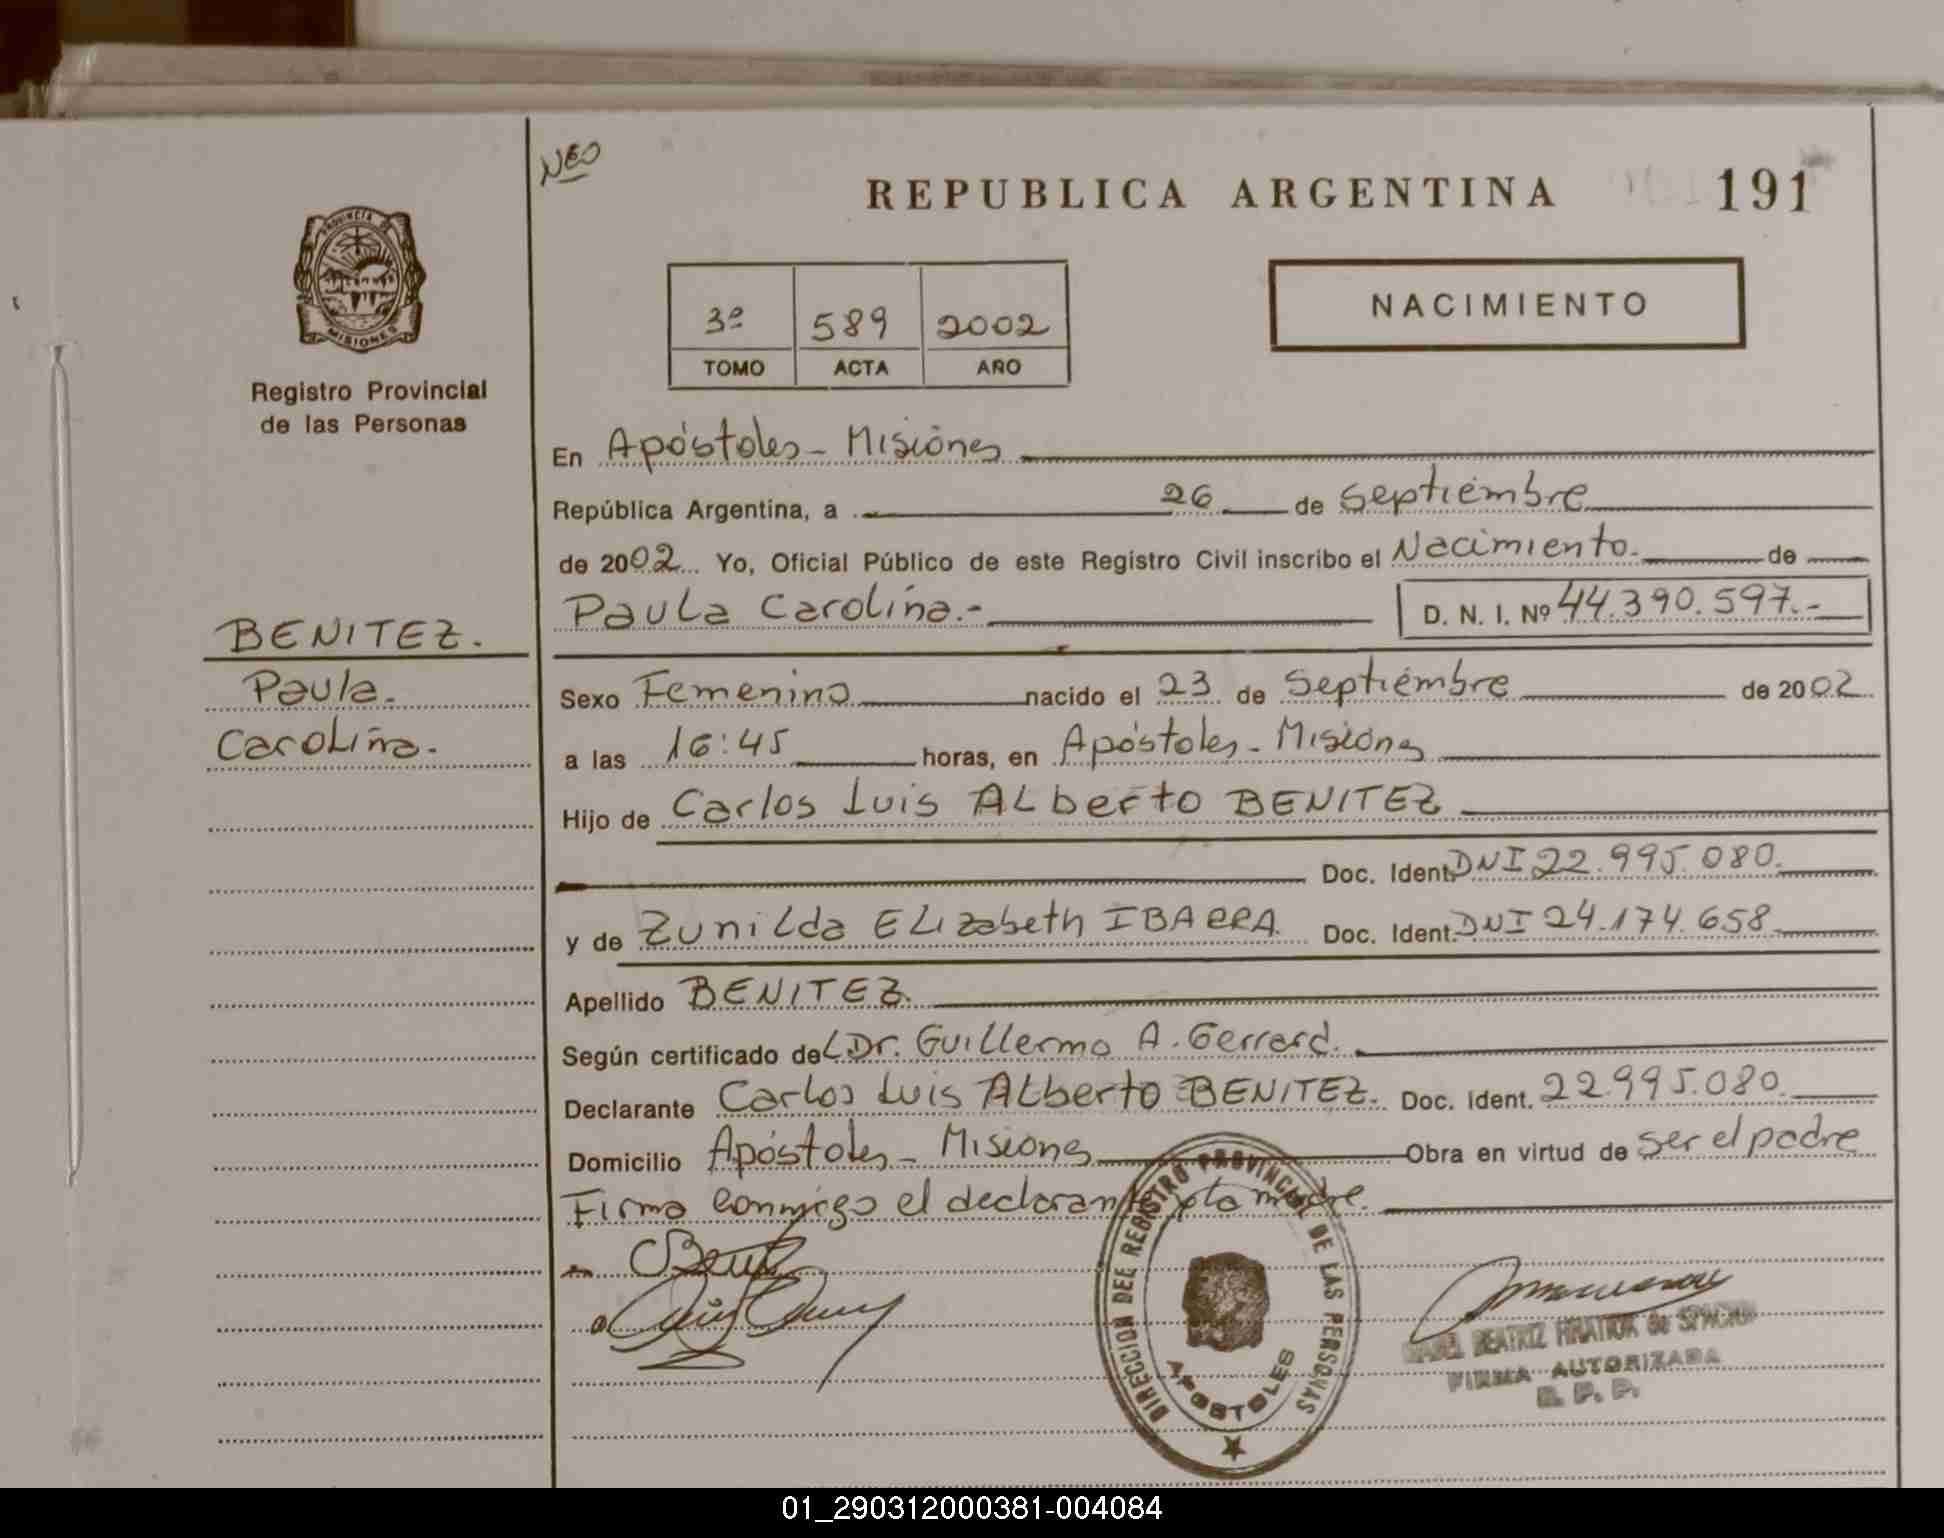 NEO
REPUBLICA ARGENTINA 191
PROVINCIA DE
MISIONES
Registro Provincial
de las Personas
3º 589 2002
TOMO ACTA AÑO
NACIMIENTO
En Apóstoles - Misiones
República Argentina, a 26 de Septiembre
de 2002 Yo, Oficial Público de este Registro Civil inscribo el Nacimiento. de
Paula Carolina.- D. N. I. Nº 44.390.597.-
BENITEZ.
Paula.
Carolina.
Sexo Femenino nacido el 23 de Septiembre de 2002
a las 16:45 horas, en Apóstoles - Misiones
Hijo de Carlos Luis Alberto BENITEZ
Doc. Ident. DNI 22.995.080.
y de Zunilda Elizabeth IBARRA Doc. Ident. DNI 24.174.658
Apellido BENITEZ.
Según certificado del Dr. Guillermo A. Gerrard.
Declarante Carlos Luis Alberto BENITEZ. Doc. Ident. 22.995.080
Domicilio Apóstoles - Misiones Obra en virtud de ser el padre
Firma conmigo el declarante y la madre.
DIRECCION DEL REGISTRO PROVINCIAL DE LAS PERSONAS
APOSTOLES
BEATRIZ de
FIRMA AUTORIZADA
R. P. P.
01_290312000381-004084